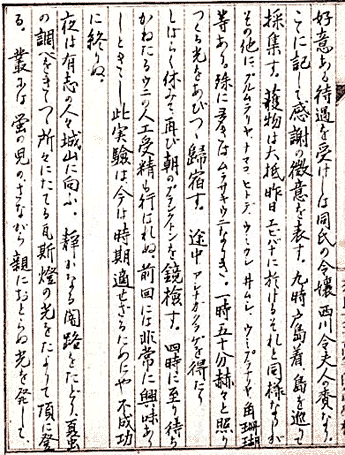 好意ある待遇を受けしは同氏の令嬢西川令夫人の賚なり
こゝに記して感謝の微意を表す。九時戸島着、島を巡りて
採集す。獲物は大抵昨日エビバに於けるそれと同様なるが
その他に、プルムラリヤ、ナマコ、ヒトデ、ウミウシ、ホムレ、ウミプラナリヤ、角珊瑚
等あり。殊に多きはムラサキウニなりき、一時五十分赫々と照り
つくる光をあびつゝ歸宿す。途中アンドンクラゲを得たり
しばらく休みて再び朝のプランクトンを鏡検す。四時に至り待ち
かねたるウニの人工受精も行はれぬ、前回には非常に興味あり
しときゝし此実験は今は時期適せざるためにや不成功
に終りぬ。
夜は有志の人々城山に向ふ。静かなる闇路をたどり、夏虫
の調べをきゝつゝ所々にたてる瓦斯燈の光をたよりて頂に登
る。叢には蛍の児のさながら親におとらぬ光を発して、